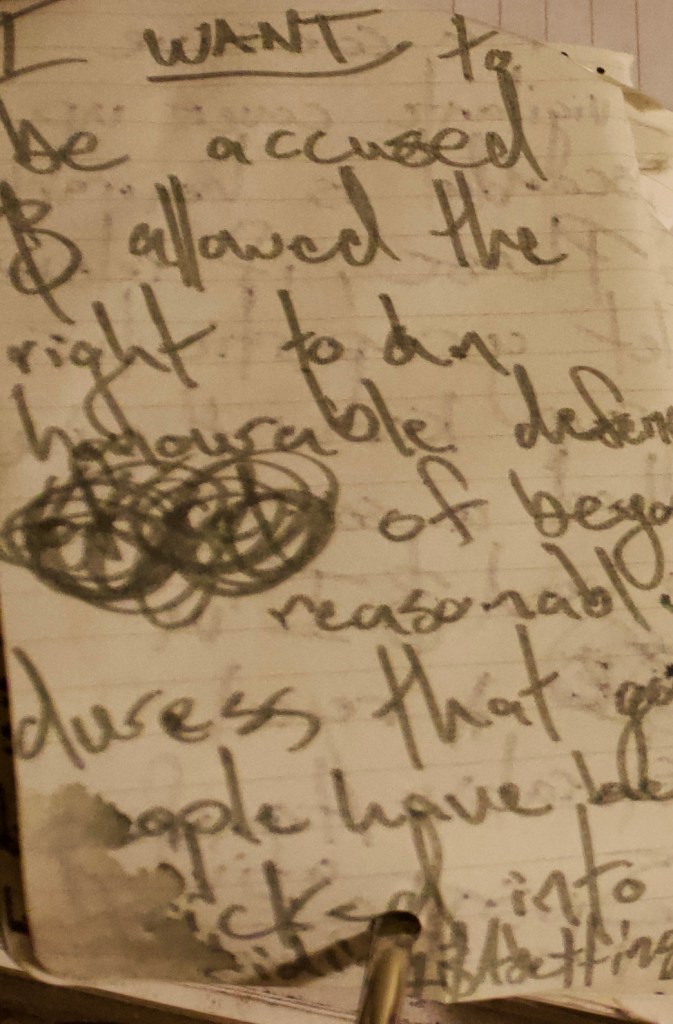 I WANT to
be accused
& allowed the
right to an
honourable defen
of beyo
reasonabl
duress that go
eople have be
icked into